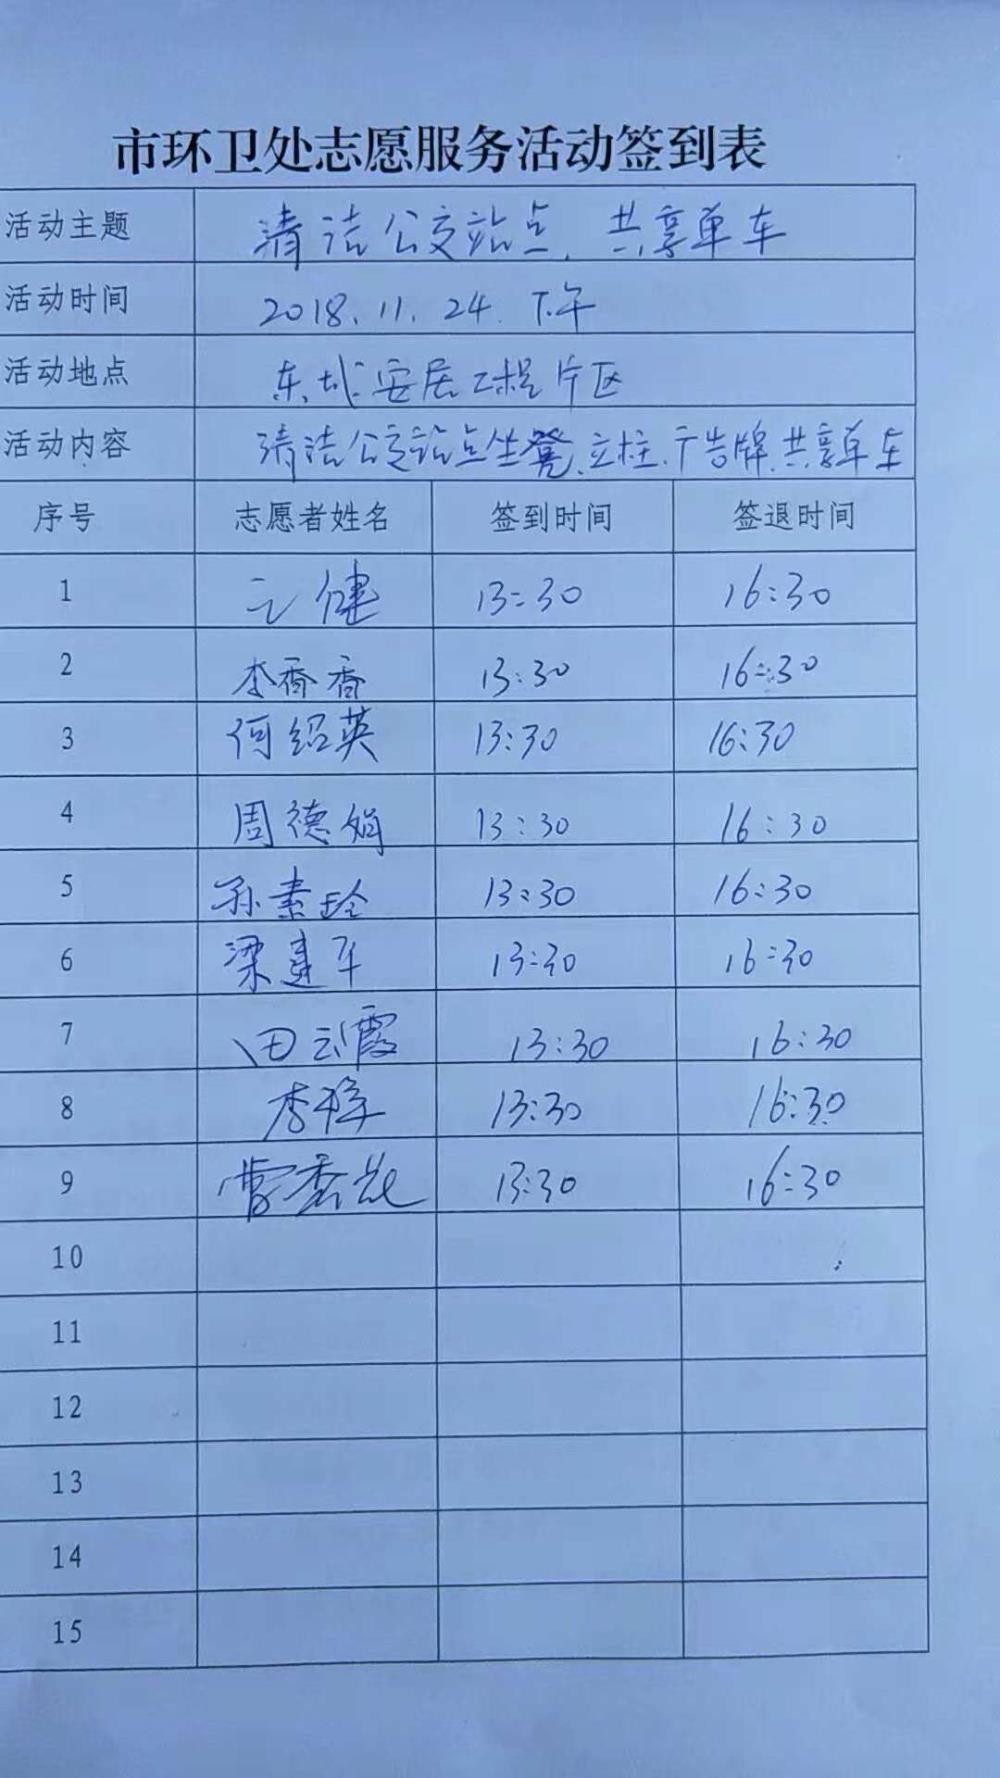 市环卫处志愿服务活动签到表
活动主题 清洁公交站点、共享单车
活动时间 2018.11.24.下午
活动地点 东城安居工程片区
活动内容 清洁公交站点坐凳、立柱、广告牌、共享单车
序号 志愿者姓名 签到时间 签退时间
1 健 13:30 16:30
2 李香香 13:30 16:30
3 何绍英 13:30 16:30
4 周德娟 13:30 16:30
5 孙素玲 13:30 16:30
6 梁建军 13:30 16:30
7 田云霞 13:30 16:30
8 李 13:30 16:30
9 曹秀花 13:30 16:30
10
11
12
13
14
15